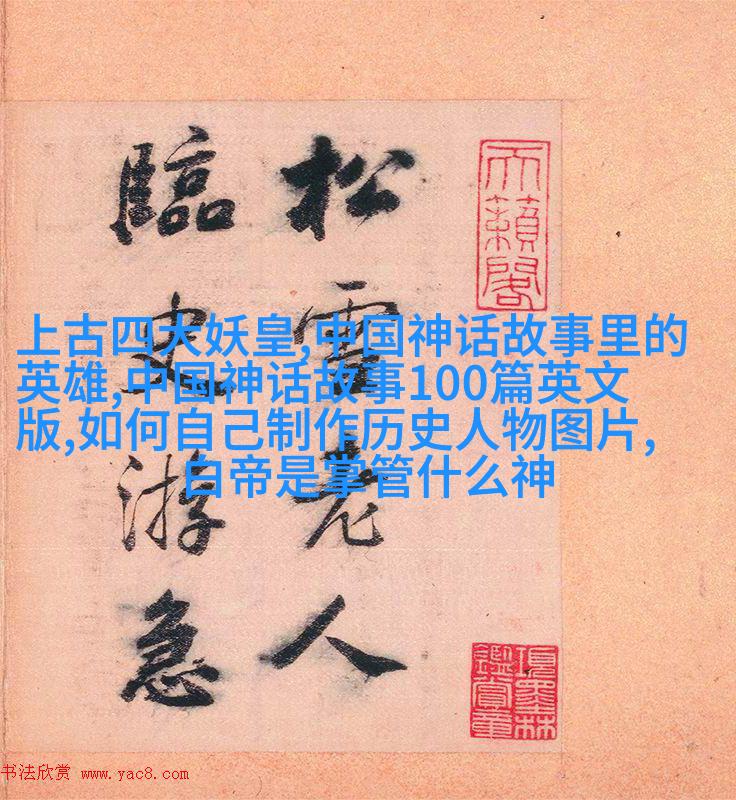 松雪老人
臨史游急
天籟閣
項墨林
鑑賞章
上古四大妖皇,中国神话故事里的
英雄,中国神话故事100篇英文
版,如何自己制作历史人物图片,
白帝是掌管什么神
书法欣赏 www.yac8.com